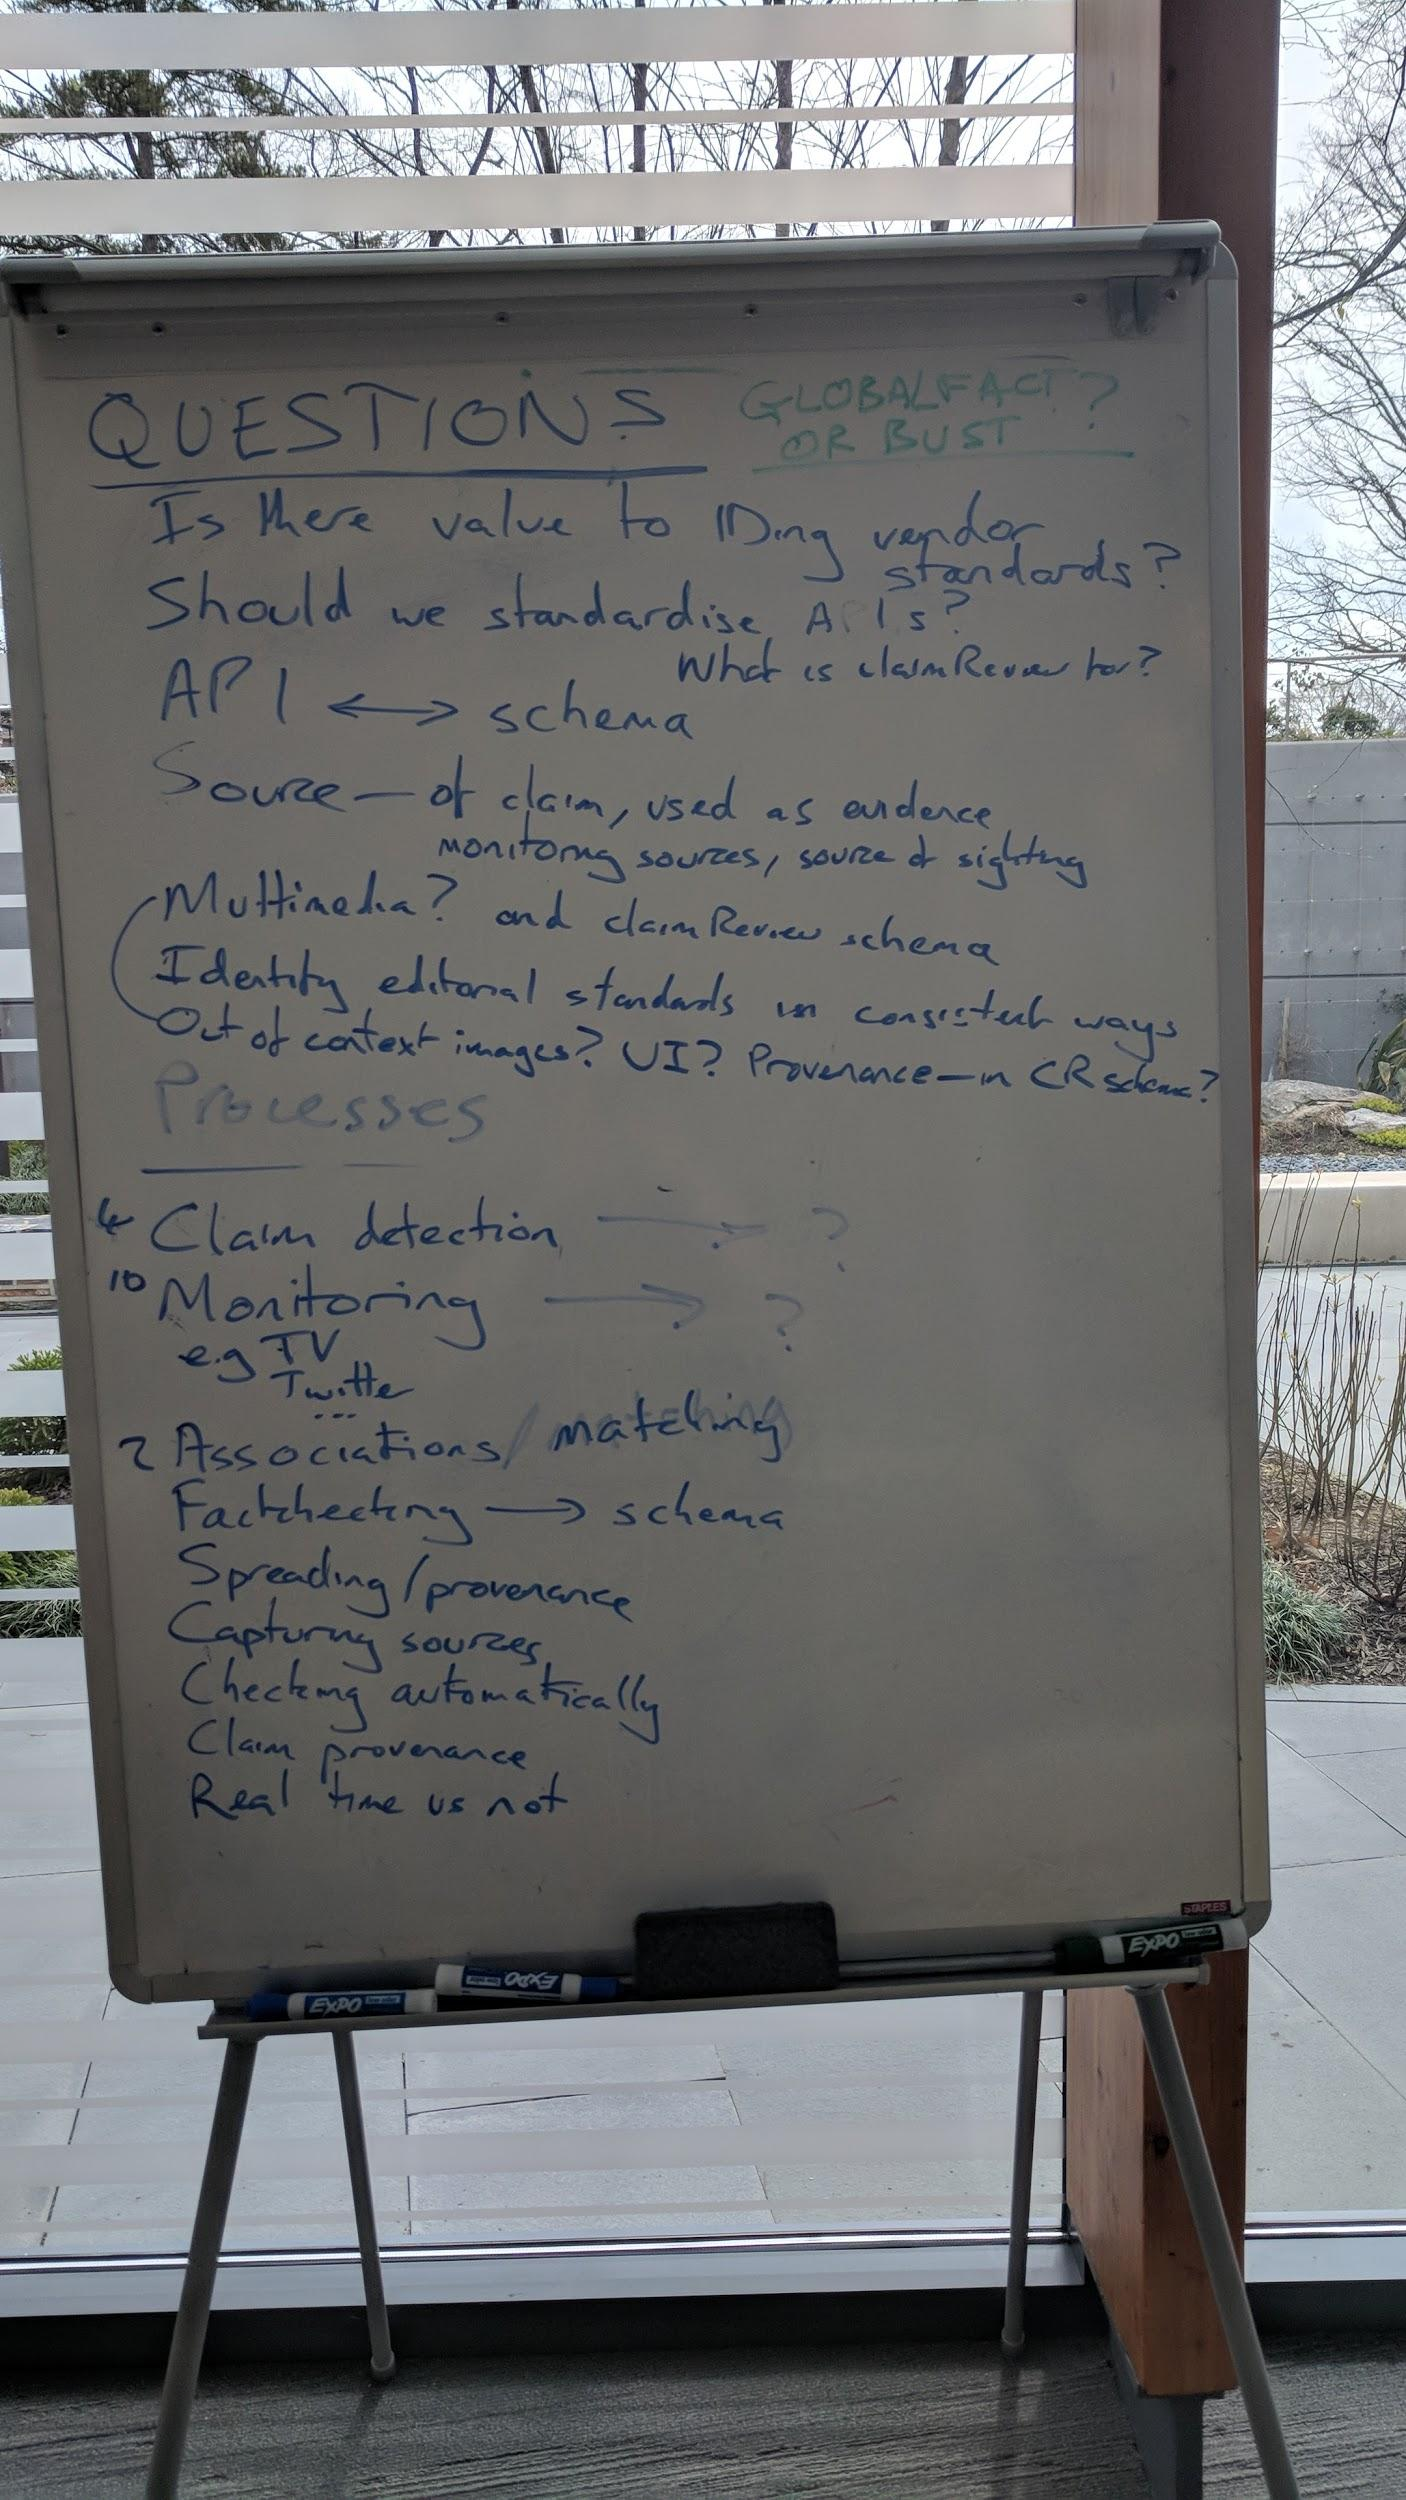 QUESTIONS
GLOBALFACT?
OR BUST
Is there value to IDing vendor
standards?
Should we standardise APIs?
What is claimReview for?
API ↔ schema
Source — of claim, used as evidence
monitoring sources, source of sighting
Multimedia? and claimReview schema
Identify editorial standards in consistent ways
Out of context images? UI? Provenance — in CR schema?
Processes
Claim detection → ?
10 Monitoring → ?
e.g TV
Twitter
...
2 Associations/matching
Factchecking → schema
Spreading/provenance
Capturing sources
Checking automatically
Claim provenance
Real time vs not
STAPLES
EXPO
EXPO
EXPO